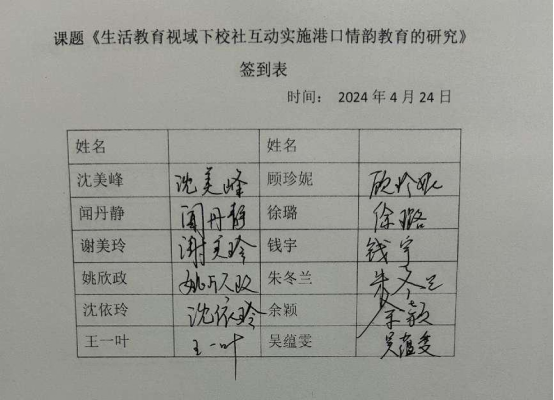 课题《生活教育视域下校社互动实施港口情韵教育的研究》
签到表
时间： 2024 年 4 月 24 日
姓名 姓名
沈美峰 沈美峰 顾珍妮 顾珍妮
闻丹静 闻丹静 徐璐 徐璐
谢美玲 谢美玲 钱宇 钱宇
姚欣政 姚欣政 朱冬兰 朱冬兰
沈依玲 沈依玲 余颖 余颖
王一叶 王一叶 吴蕴雯 吴蕴雯